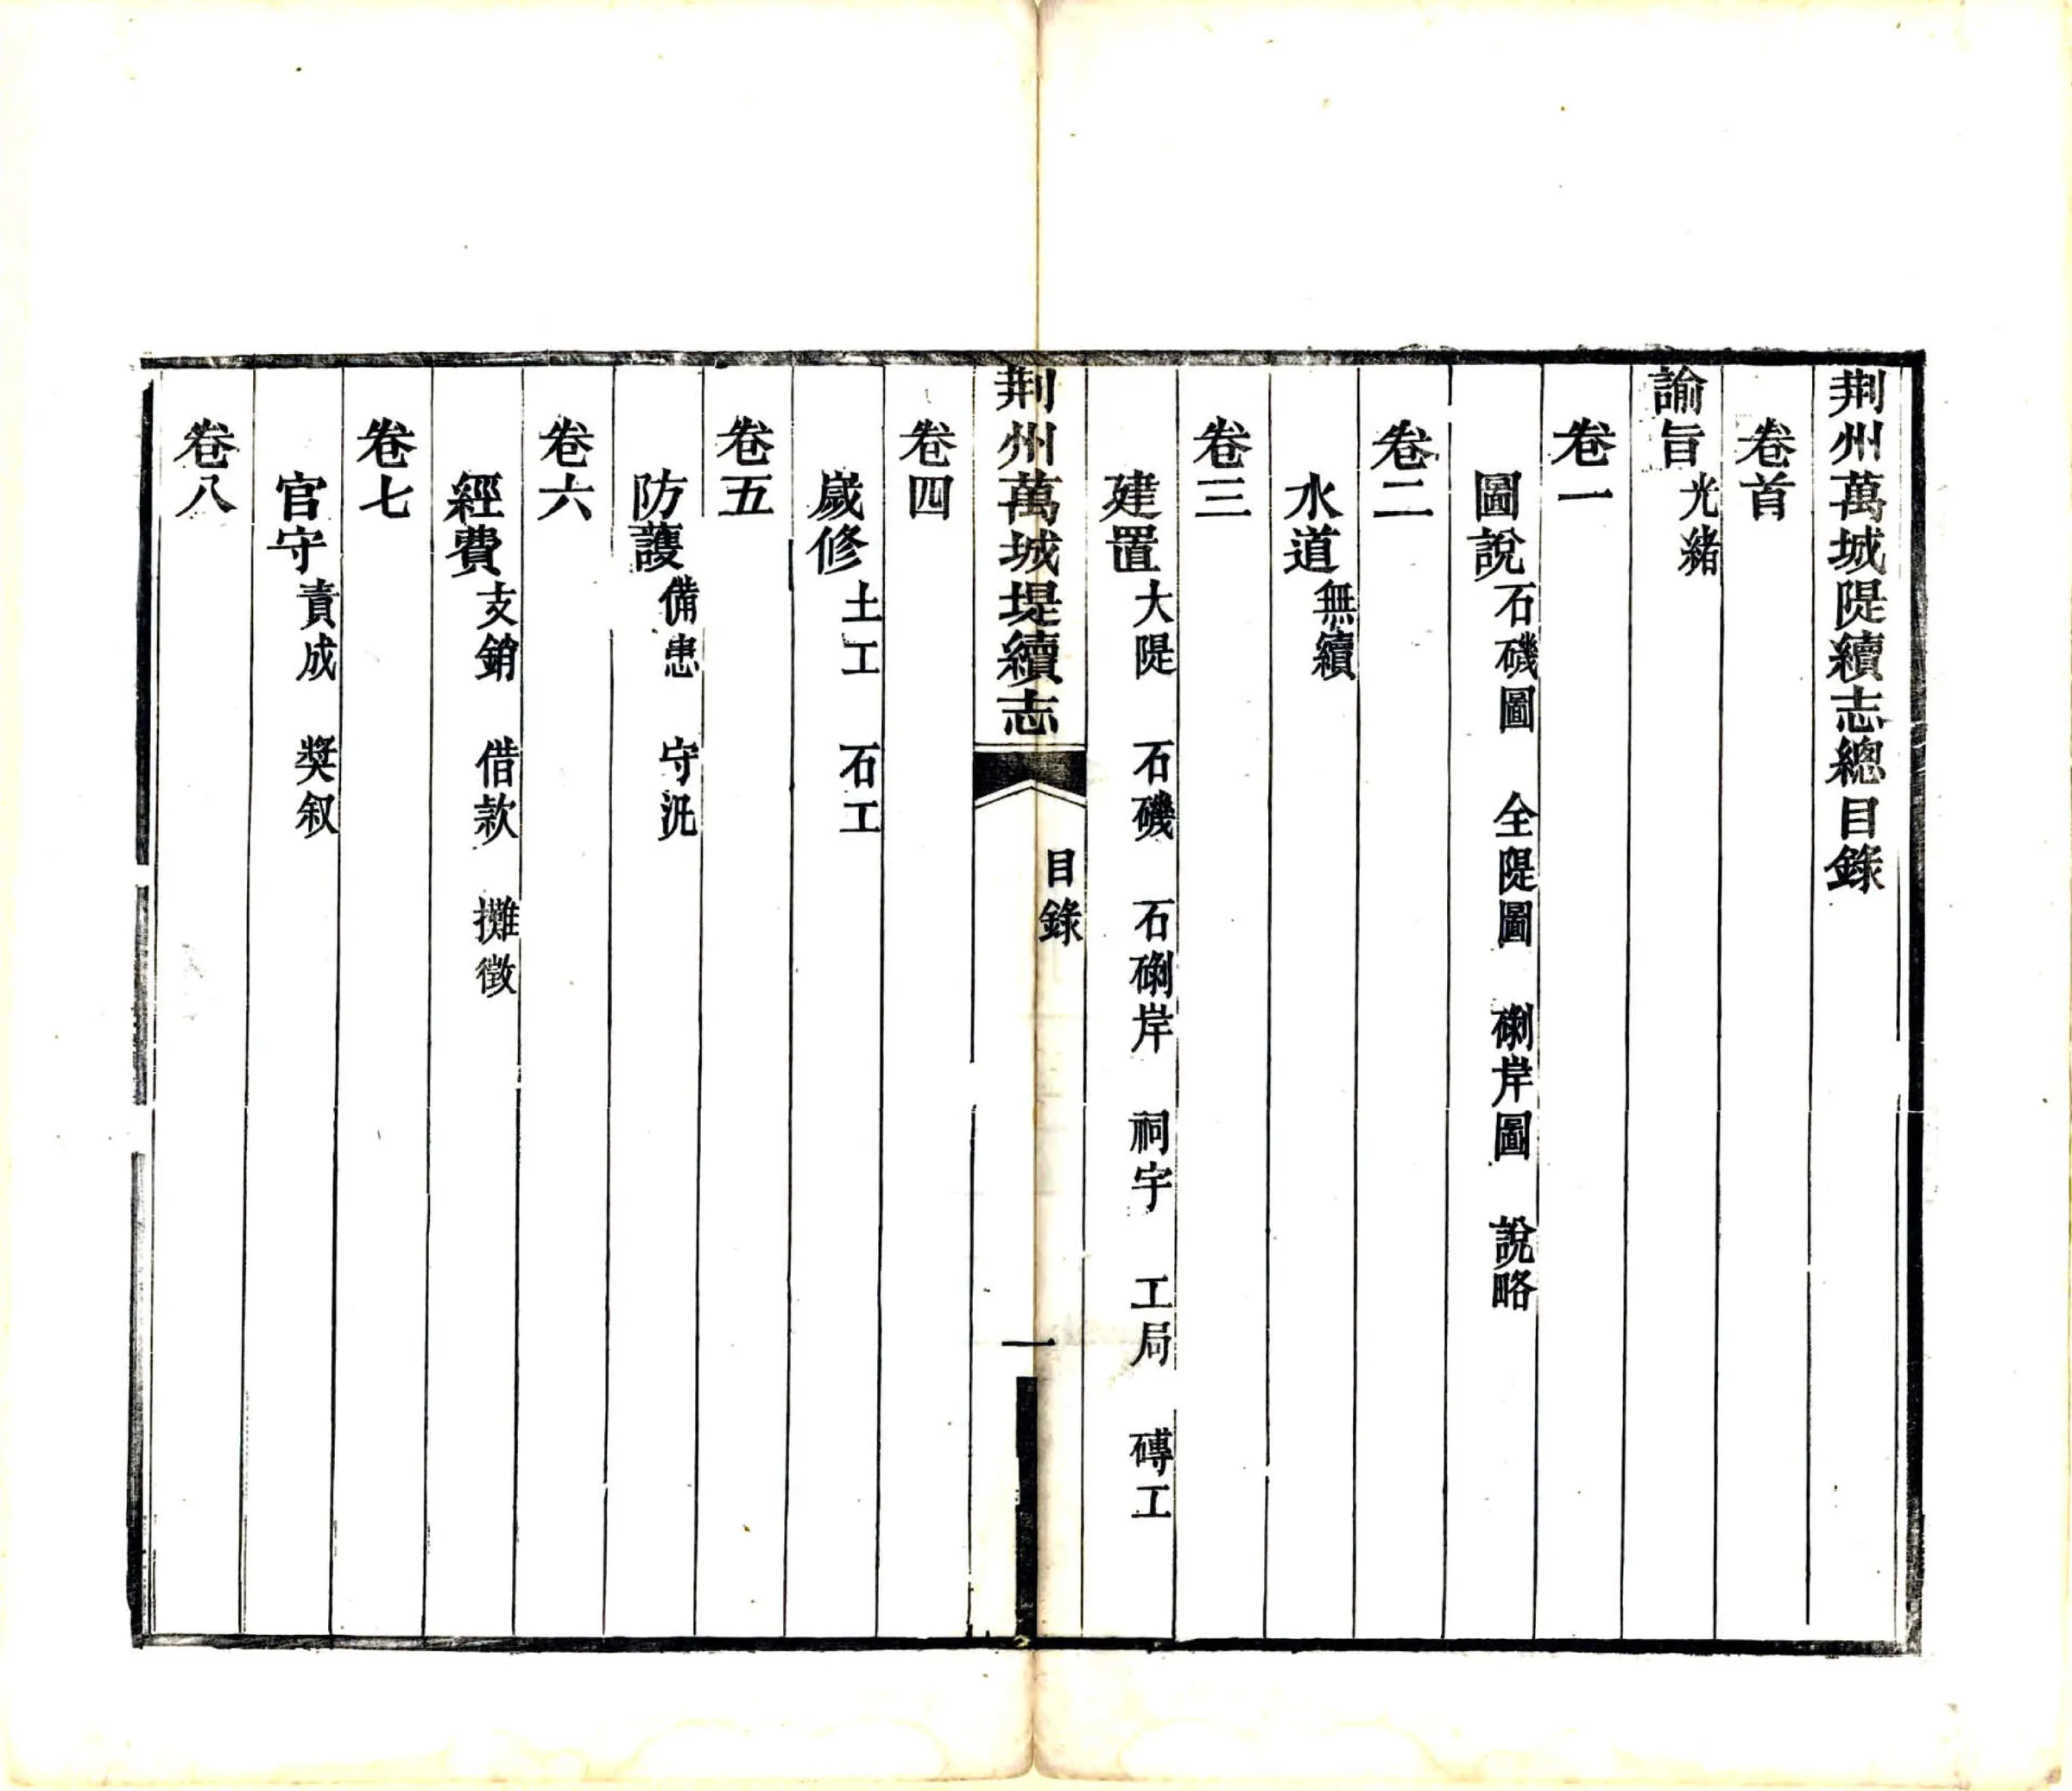 荆州萬城隄續志總目錄
卷首
諭旨光緒
卷一
圖說石磯圖 全隄圖 磵岸圖 說略
卷二
水道無續
卷三
建置大隄 石磯 石磵岸 祠宇 工局 磚工
荆州萬城堤續志 目錄 一
卷四
歲修土工 石工
卷五
防護備患 守汛
卷六
經費支銷 借款 攤徵
卷七
官守責成 奬叙
卷八